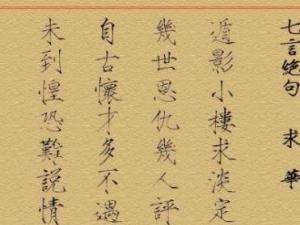 七言絕句 求華
遁影小樓求淡定
幾世恩仇幾人評
自古懷才多不遇
未到惶恐難說情